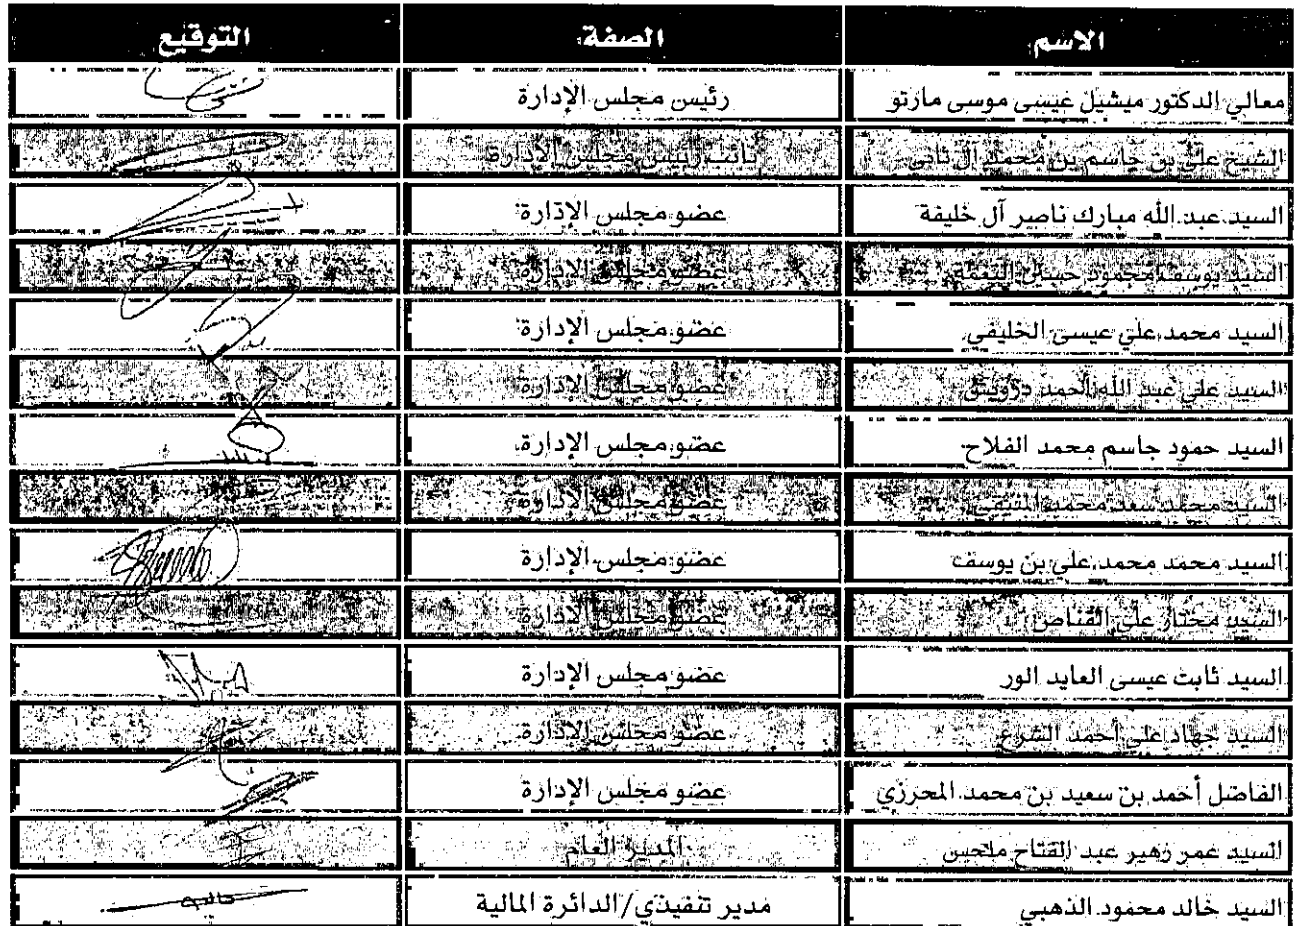 الاسم الصفة التوقيع
معالي الدكتور ميشيل عيسى موسى مارتو رئيس مجلس الإدارة
الشيخ علي بن جاسم بن محمد آل ثاني نائب رئيس مجلس الإدارة
السيد عبد الله مبارك ناصر آل خليفة عضو مجلس الإدارة
السيد يوسف محمود حسين النعمة عضو مجلس الإدارة
السيد محمد علي عيسى الخليفي عضو مجلس الإدارة
السيد علي عبد الله أحمد درويش عضو مجلس الإدارة
السيد حمود جاسم محمد الفلاح عضو مجلس الإدارة
السيد محمد سعد محمد المنيفي عضو مجلس الإدارة
السيد محمد محمد علي بن يوسف عضو مجلس الإدارة
السيد مختار علي القناص عضو مجلس الإدارة
السيد ثابت عيسى العايد الور عضو مجلس الإدارة
السيد جهاد علي أحمد الشرع عضو مجلس الإدارة
الفاضل أحمد بن سعيد بن محمد المحرزي عضو مجلس الإدارة
السيد عمر زهير عبد الفتاح ملحس المدير العام
السيد خالد محمود الذهبي مدير تنفيذي/الدائرة المالية